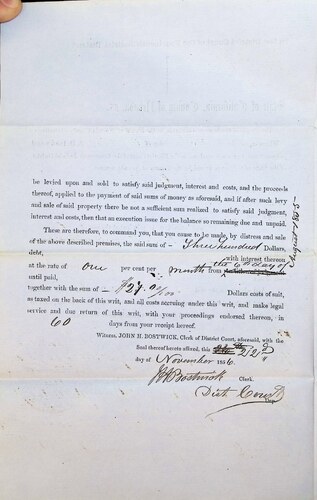 be levied upon and sold to satisfy said judgment, interest and costs, and the proceeds
thereof, applied to the payment of said sums of money as aforesaid, and if after such levy
and sale of said property there be not a sufficient sum realized to satisfy said judgment,
interest and costs, then that an execution issue for the balance so remaining due and unpaid.
These are therefore, to command you, that you cause to be made, by distress and sale
of the above described premises, the said sum of - Three hundred Dollars,
debt, with interest thereon
at the rate of one per cent per month from the 6th day of
until paid,
together with the sum of - $27.0/00 Dollars costs of suit,
as taxed on the back of this writ, and all costs accruing under this writ, and make legal
service and due return of this writ, with your proceedings endorsed thereon, in
60 days from your receipt hereof.
Witness, JOHN H. BOSTWICK, Clerk of District Court, aforesaid, with the
Seal thereof hereto affixed, this 22d
day of November 1856.
J H Bostwick Clerk.
Dist Court